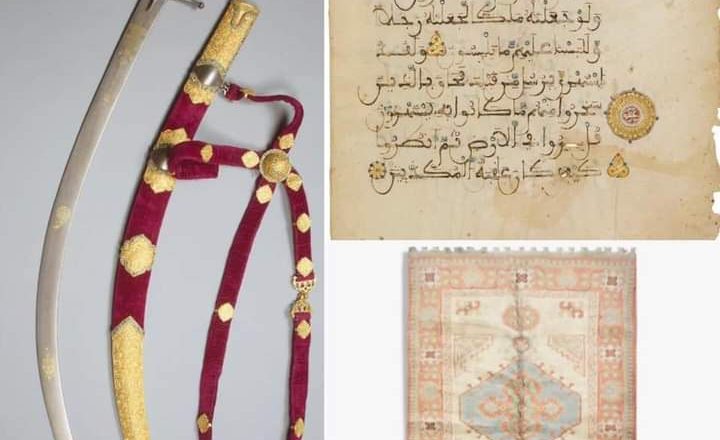 ولو جعلنه ملكا لجعلنه رجلا
وللبسنا عليهم ما يلبسون ولقد
استهزئ برسل من قبلك فحاق بالذين
سخروا منهم ما كانوا به يستهزءون
قل سيروا في الارض ثم انظروا
كيف كان عقبة المكذبين